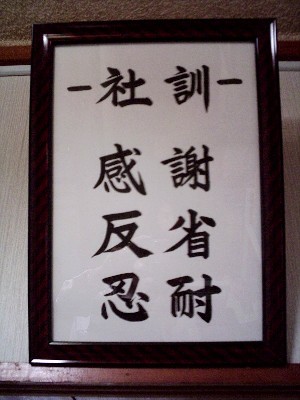 －社訓－
感謝
反省
忍耐